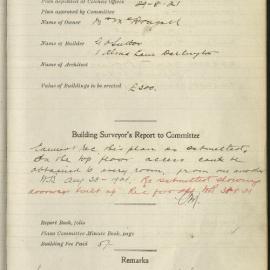 Plan deposited at Council Office 29-8-21
Plan approved by Committee
Name of Owner Mr McDougall
Name of Builder G Sutton
Lane Darlington
Name of Architect
Value of Buildings to be erected £500.
Building Surveyor's Report to Committee
Cannot rec this plan as submitted,
On the top floor access cannot be
obtained to every room, from one
Aug 30-1921. Re submitted showing
doorway built up
Report Book, folio
Plans Committee Minute Book, page
Building Fee Paid 5/-
Remarks